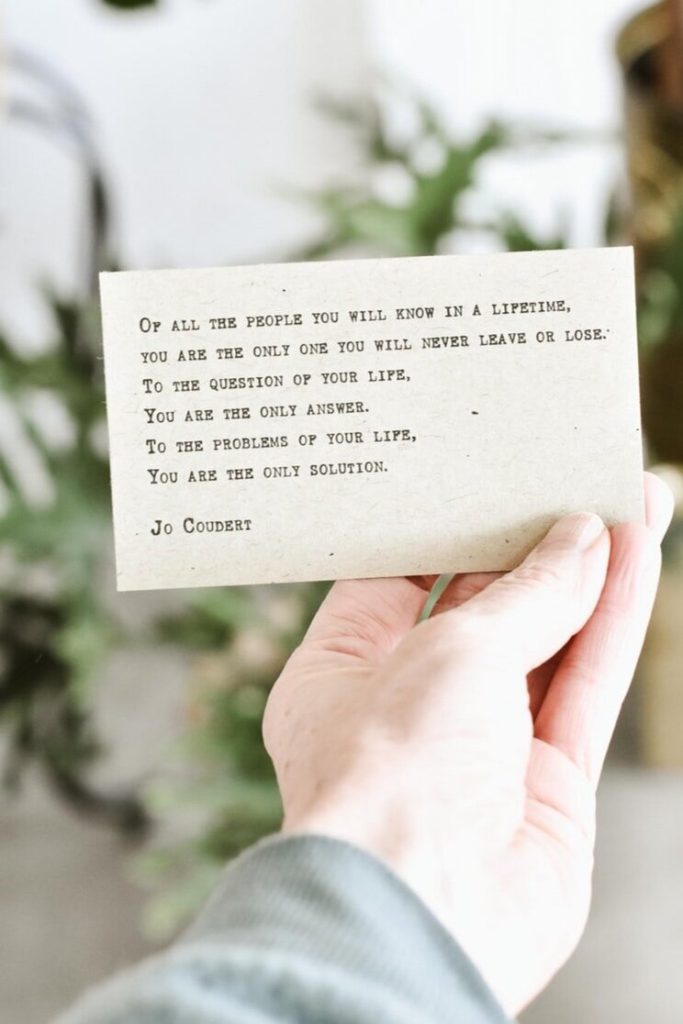 Of all the people you will know in a lifetime,
you are the only one you will never leave or lose.
To the question of your life,
You are the only answer.
To the problems of your life,
You are the only solution.
Jo Coudert